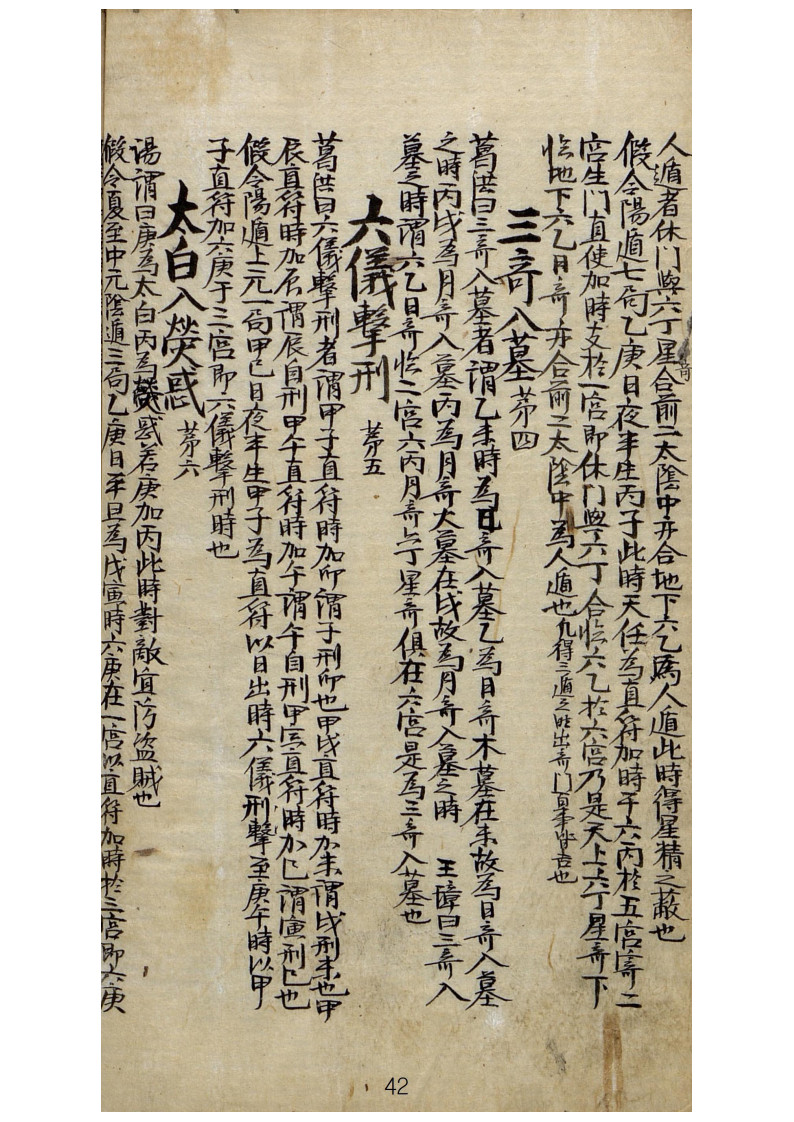 人遁者休门與六丁星合前二太陰中亦合地下六乙爲人遁此時得星精之蔽也
奇
假令陽遁七局乙庚日夜半生丙子此時天任為直符加時干六丙於五宫寄二
宫生門直使加時支於一宫即休门與六丁合临六乙於六宫乃是天上六丁星奇下
临地下六乙日奇亦合前二太陰中為人遁也凢得三遁之时出奇门百事皆吉也
三奇入墓 苐四
葛洪曰三奇入墓者謂乙未時為日奇入墓乙為日奇木墓在未故為日奇入墓
之時丙戌為月奇入墓丙為月奇火墓在戌故為月奇入墓之時 王璋曰三奇入
墓之時謂六乙日奇临二宫六丙月奇六丁星奇俱在六宫是為三奇入墓也
六儀擊刑 苐五
葛洪曰六儀擊刑者謂甲子直符時加卯謂子刑卯也甲戌直符時加未謂戌刑未也甲
辰直符時加辰謂辰自刑甲午直符時加午謂午自刑甲寅直符時加巳謂寅刑巳也
假令陽遁上元一局甲己日夜半生甲子為直符以日出時六儀刑擊至庚午時以甲
子直符加六庚于三宫即六儀擊刑時也
太白入熒惑 苐六
湯謂曰庚為太白丙為熒惑若庚加丙此時對敵宜防盜賊也
假令夏至中元陰遁三局乙庚日平旦為戊寅時六庚在一宫以直符加時於三宫即六庚
42